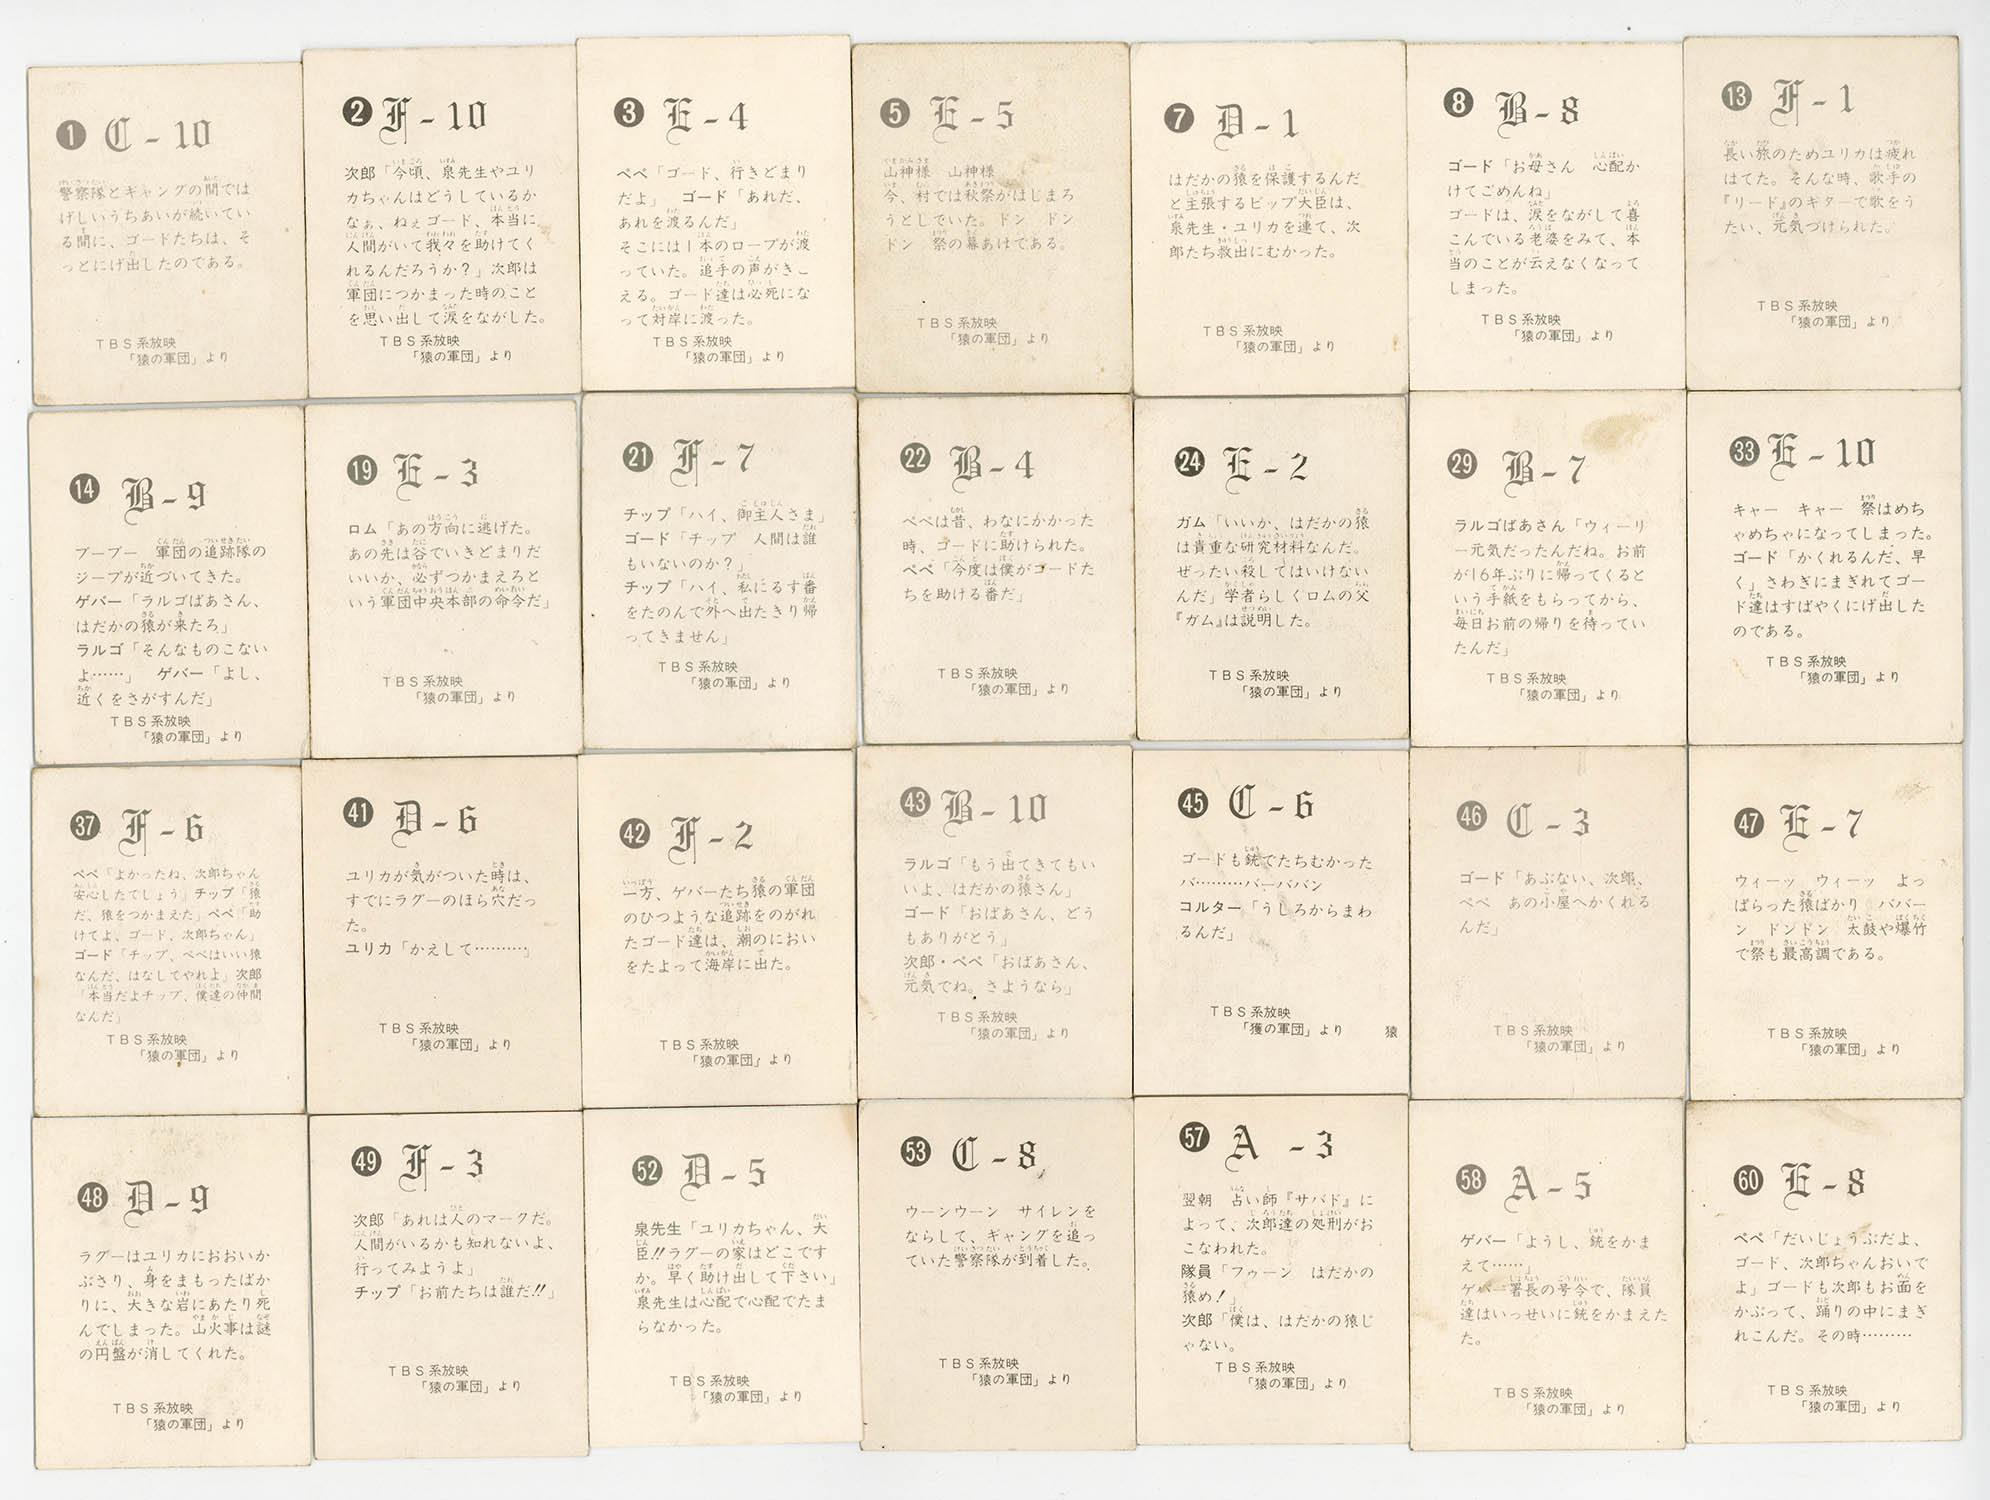 1 C-10
警察隊とギャングの間では
げしいうちあいが続いてい
る間に、ゴードたちは、そ
っとにげ出したのである。
TBS系放映
「猿の軍団」より
2 F-10
次郎「今頃、泉先生やユリ
カちゃんはどうしているか
なぁ、ねぇゴード、本当に
人間がいて我々を助けてく
れるんだろうか?」次郎は
軍団につかまった時のこと
を思い出して涙をながした。
TBS系放映
「猿の軍団」より
3 E-4
ペペ「ゴード、行きどまり
だよ」 ゴード「あれだ、
あれを渡るんだ」
そこには1本のロープが渡
っていた。追手の声がきこ
える。ゴード達は必死にな
って対岸に渡った。
TBS系放映
「猿の軍団」より
5 E-5
山神様 山神様
今、村では秋祭がはじまろ
うとしていた。ドン ドン
ドン 祭の幕あけである。
TBS系放映
「猿の軍団」より
7 D-1
はだかの猿を保護するんだ
と主張するビップ大臣は、
泉先生・ユリカを連て、次
郎たち救出にむかった。
TBS系放映
「猿の軍団」より
8 B-8
ゴード「お母さん 心配か
けてごめんね」
ゴードは、涙をながして喜
こんでいる老婆をみて、本
当のことが云えなくなって
しまった。
TBS系放映
「猿の軍団」より
13 F-1
長い旅のためユリカは疲れ
はてた。そんな時、歌手の
『リード』のギターで歌をう
たい、元気づけられた。
TBS系放映
「猿の軍団」より
14 B-9
ブーブー 軍団の追跡隊の
ジープが近づいてきた。
ゲバー「ラルゴばあさん、
はだかの猿が来たろ」
ラルゴ「そんなものこない
よ……」 ゲバー「よし、
近くをさがすんだ」
TBS系放映
「猿の軍団」より
19 E-3
ロム「あの方向に逃げた。
あの先は谷でいきどまりだ
いいか、必ずつかまえろと
いう軍団中央本部の命令だ」
TBS系放映
「猿の軍団」より
21 F-7
チップ「ハイ、御主人さま」
ゴード「チップ 人間は誰
もいないのか?」
チップ「ハイ、私にるす番
をたのんで外へ出たきり帰
ってきません」
TBS系放映
「猿の軍団」より
22 B-4
ペペは昔、わなにかかった
時、ゴードに助けられた。
ペペ「今度は僕がゴードた
ちを助ける番だ」
TBS系放映
「猿の軍団」より
24 E-2
ガム「いいか、はだかの猿
は貴重な研究材料なんだ。
ぜったい殺してはいけない
んだ」学者らしくロムの父
『ガム』は説明した。
TBS系放映
「猿の軍団」より
29 B-7
ラルゴばあさん「ウィーリ
ー元気だったんだね。お前
が16年ぶりに帰ってくると
いう手紙をもらってから、
毎日お前の帰りを待ってい
たんだ」
TBS系放映
「猿の軍団」より
33 E-10
キャー キャー 祭はめち
ゃめちゃになってしまった。
ゴード「かくれるんだ、早
く」さわぎにまぎれてゴー
ド達はすばやくにげ出した
のである。
TBS系放映
「猿の軍団」より
37 F-6
ペペ「よかったね、次郎ちゃん
安心したでしょう」チップ「猿
だ、猿をつかまえた」ペペ「助
けてよ、ゴード、次郎ちゃん」
ゴード「チップ、ペペはいい猿
なんだ、はなしてやれよ」次郎
「本当だよチップ、僕達の仲間
なんだ」
TBS系放映
「猿の軍団」より
41 D-6
ユリカが気がついた時は、
すでにラグーのほら穴だっ
た。
ユリカ「かえして………」
TBS系放映
「猿の軍団」より
42 F-2
一方、ゲバーたち猿の軍団
のひつような追跡をのがれ
たゴード達は、潮のにおい
をたよって海岸に出た。
TBS系放映
「猿の軍団」より
43 B-10
ラルゴ「もう出てきてもい
いよ、はだかの猿さん」
ゴード「おばあさん、どう
もありがとう」
次郎・ペペ「おばあさん、
元気でね。さようなら」
TBS系放映
「猿の軍団」より
45 C-6
ゴードも銃でたちむかった
バ………バーババン
コルター「うしろからまわ
るんだ」
TBS系放映
「獲の軍団」より 猿
46 C-3
ゴード「あぶない、次郎、
ペペ あの小屋へかくれる
んだ」
TBS系放映
「猿の軍団」より
47 E-7
ウィーッ ウィーッ よっ
ぱらった猿ばかり ババー
ン ドンドン 太鼓や爆竹
で祭も最高調である。
TBS系放映
「猿の軍団」より
48 D-9
ラグーはユリカにおおいか
ぶさり、身をまもったばか
りに、大きな岩にあたり死
んでしまった。山火事は謎
の円盤が消してくれた。
TBS系放映
「猿の軍団」より
49 F-3
次郎「あれは人のマークだ。
人間がいるかも知れないよ、
行ってみようよ」
チップ「お前たちは誰だ!!」
TBS系放映
「猿の軍団」より
52 D-5
泉先生「ユリカちゃん、大
臣!!ラグーの家はどこです
か。早く助け出して下さい」
泉先生は心配で心配でたま
らなかった。
TBS系放映
「猿の軍団」より
53 C-8
ウーンウーン サイレンを
ならして、ギャングを追っ
ていた警察隊が到着した。
TBS系放映
「猿の軍団」より
57 A-3
翌朝 占い師『サバド』に
よって、次郎達の処刑がお
こなわれた。
隊員「フゥーン はだかの
猿め!」
次郎「僕は、はだかの猿じ
ゃない。
TBS系放映
「猿の軍団」より
58 A-5
ゲバー「ようし、銃をかま
えて……」
ゲバー署長の号令で、隊員
達はいっせいに銃をかまえた
た。
TBS系放映
「猿の軍団」より
60 E-8
ペペ「だいじょうぶだよ、
ゴード、次郎ちゃんおいで
よ」ゴードも次郎もお面を
かぶって、踊りの中にまぎ
れこんだ。その時………
TBS系放映
「猿の軍団」より